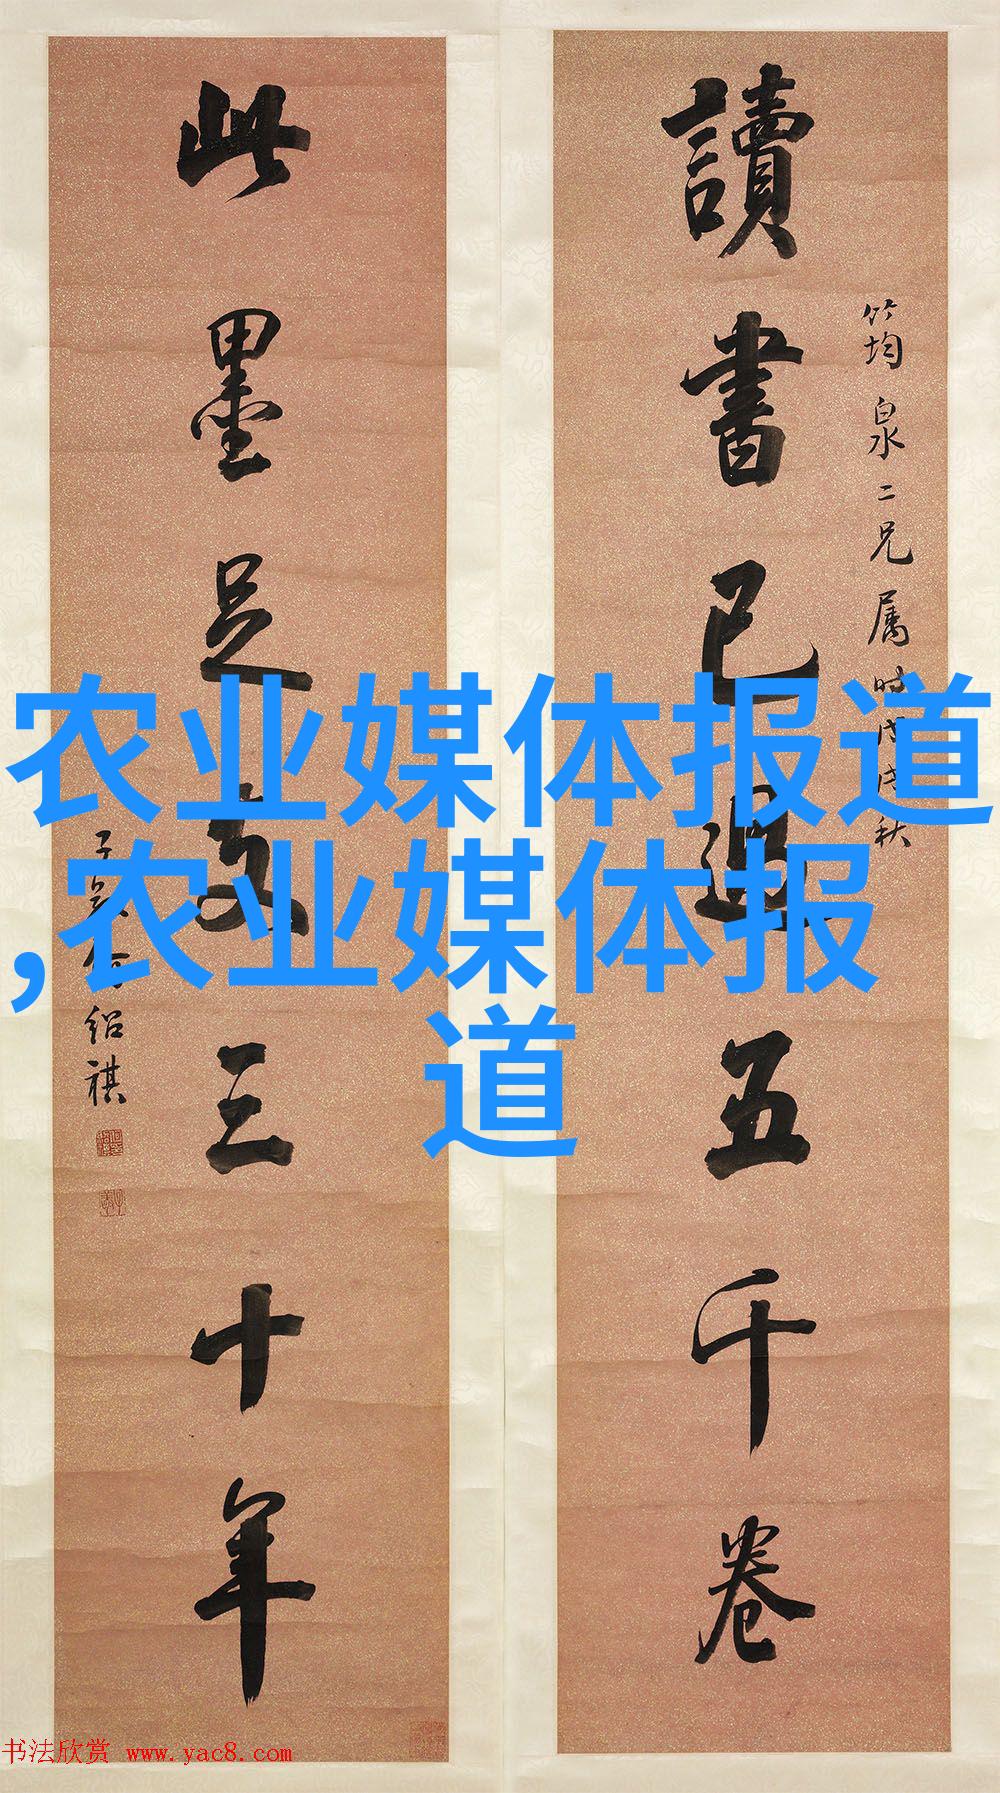 讀書已過五千卷
竹均泉二兄属時戊戌秋
此墨足支三十年
子貞何绍祺
农业媒体报道
,农业媒体报
道
书法欣赏 www.yac8.com